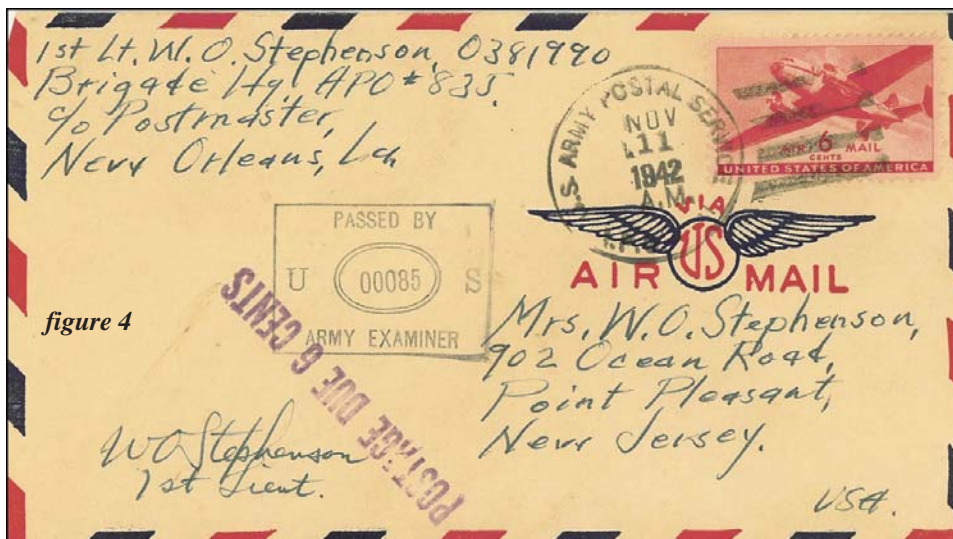 1st Lt. W. O. Stephenson, O381990
Brigade Hq. APO #835.
c/o Postmaster,
New Orleans, La
U.S. ARMY POSTAL SERVICE
NOV
11
1942
A.M.
AIR 6 MAIL
CENTS
UNITED STATES OF AMERICA
VIA
US
AIR MAIL
PASSED BY
U 00085 S
ARMY EXAMINER
POSTAGE DUE 6 CENTS
figure 4
Mrs. W. O. Stephenson,
902 Ocean Road,
Point Pleasant,
New Jersey.
USA.
WO Stephenson
1st Lieut.